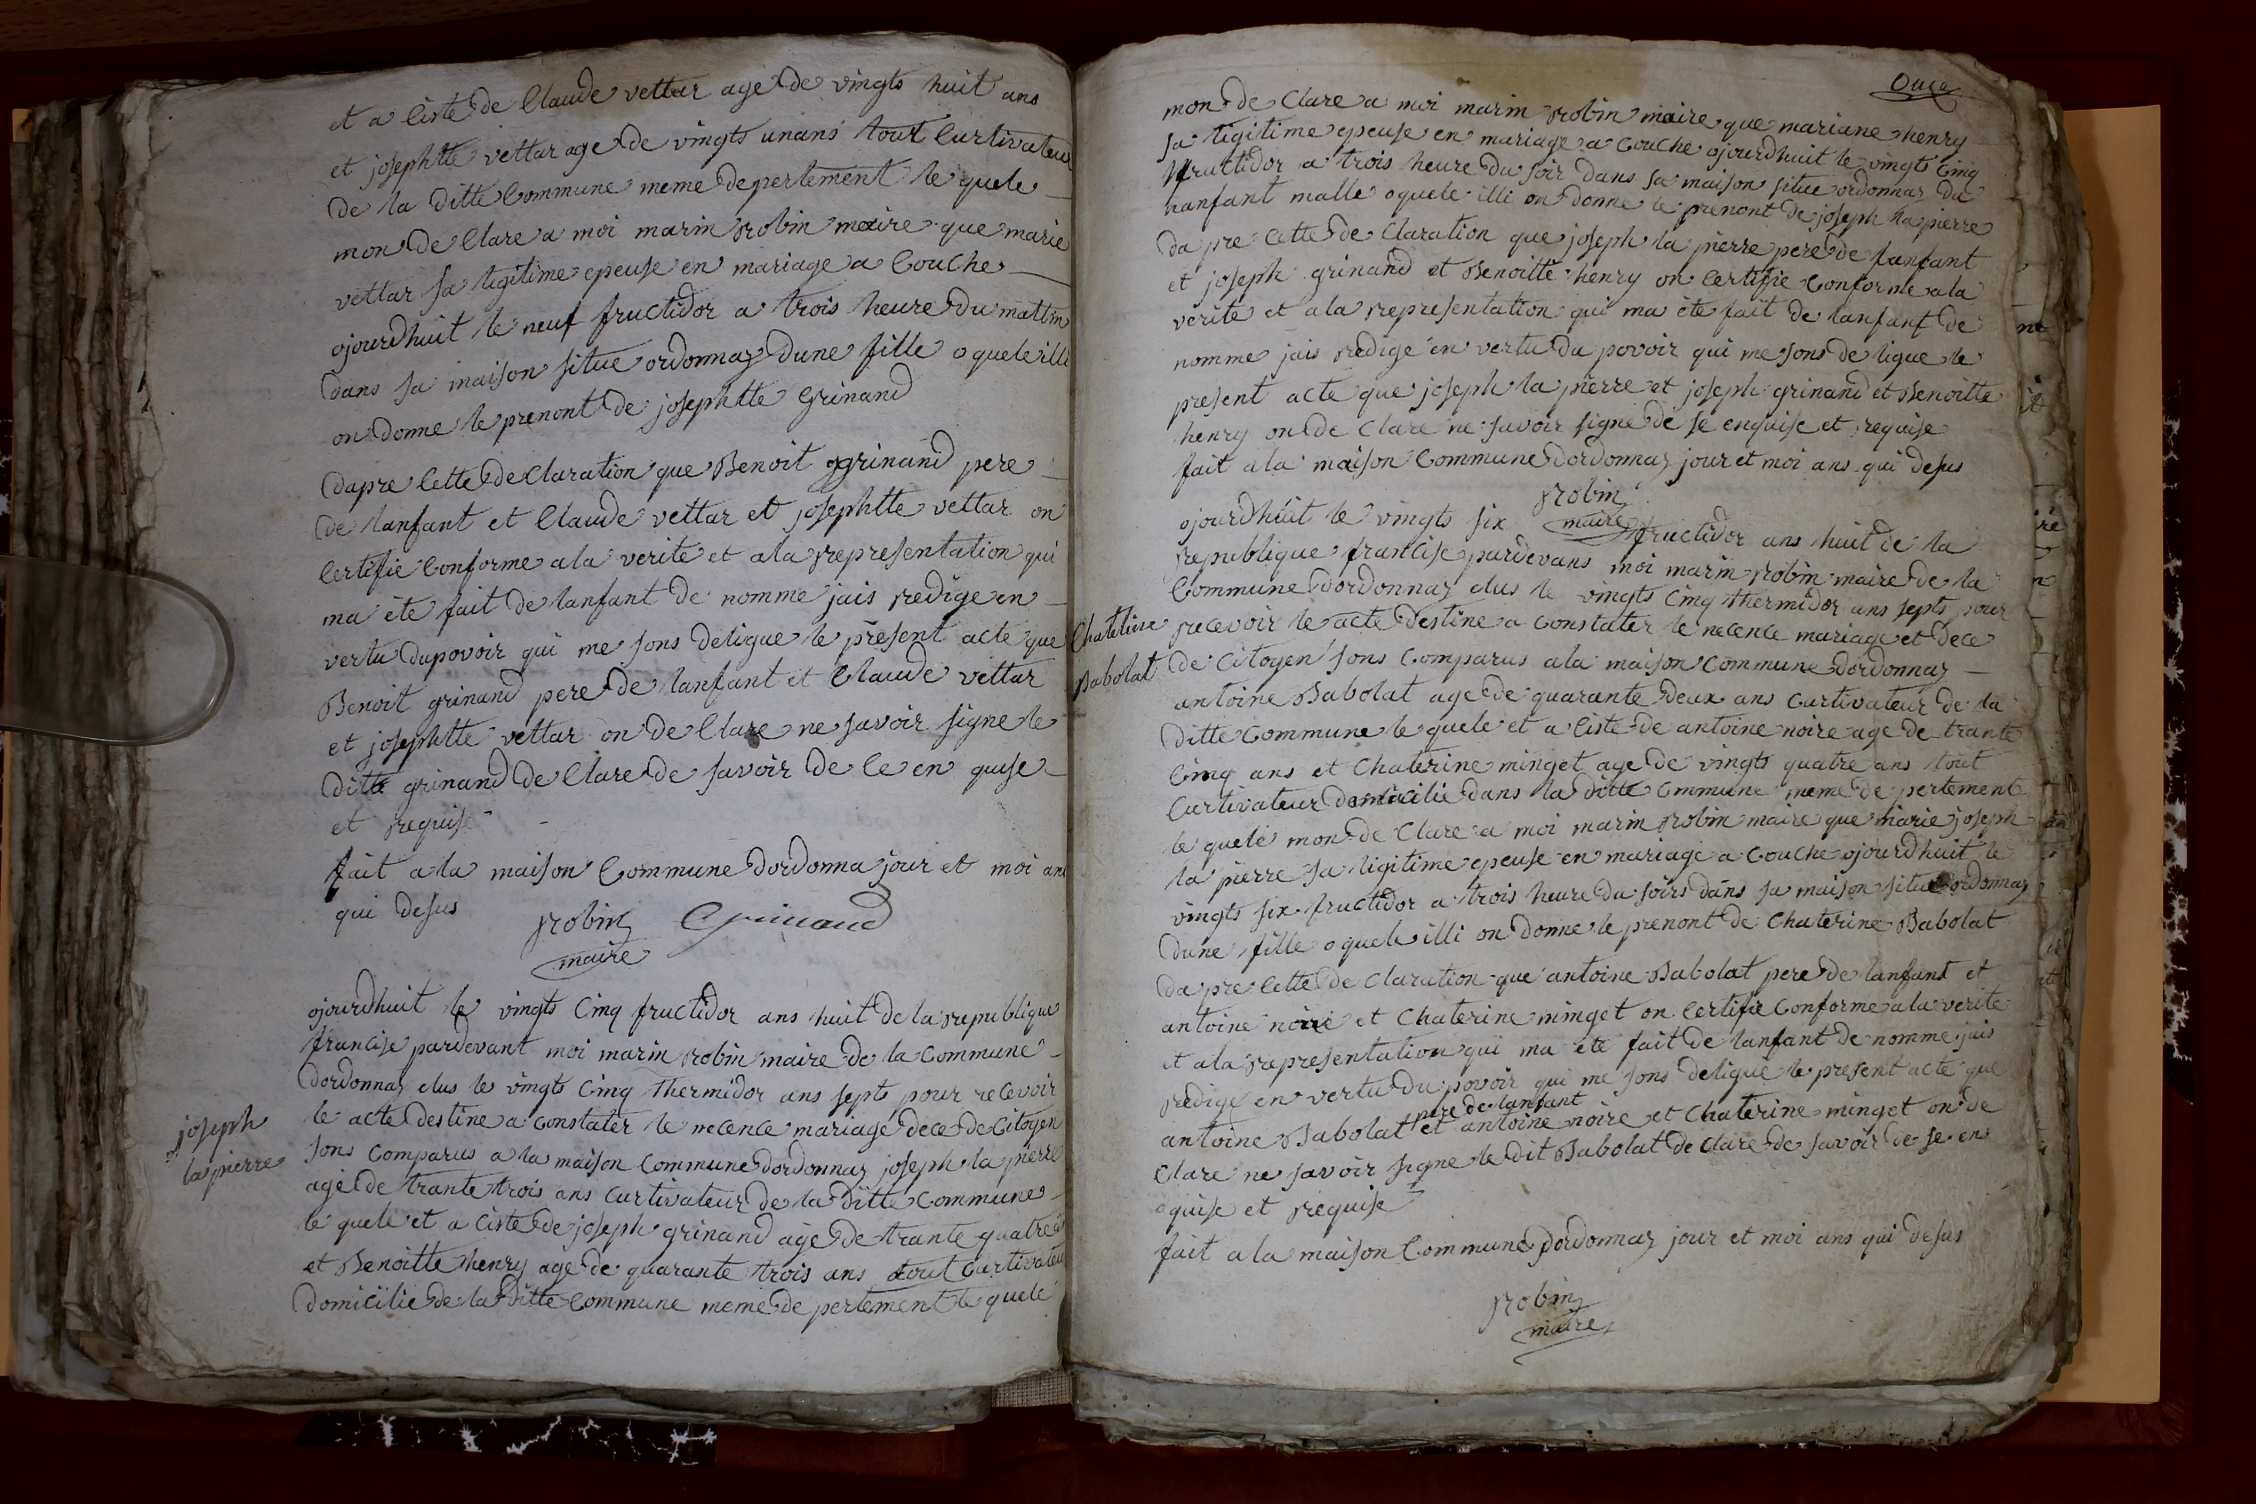 et a ciste de Claude vettar age de vingts huit ans
et josephtte vettar age de vingts unans tout Curtivateur
de la ditte Commune meme depertement le quele
mon de Clare a moi marin robin maire que marie
vettar sa legitime epeuse en mariage a Couche
ojourdhuit le neuf fructidor a trois heure du mattin
dans sa maison situe ordonnaz dune fille o quele illi
on donne le prenont de josephtte Grinand
dapre Cette de Claration que Benoit grinand pere
de lanfant et Claude vettar et josephtte vettar on
Certifie Conforme ala verite et ala representation qui
ma ete fait de lanfant de nomme jais redige en
vertu dupovoir qui me sons deligue le present acte que
Benoit grinand pere de lanfant et Claude vettar
et josephtte vettar on de Clare ne savoir signe le
ditte grinand de Clare de savoir de Ce en quise
et requise
fait a la maison Commune dordonna jour et moi ans
qui desus
robin Grinand
maire
ojourdhuit le vingts Cinq fructidor ans huit de la republique
francise pardevant moi marin robin maire de la Commune
dordonnaz elus le vingts Cinq thermidor ans septs pour recevoir
le acte destine a Constater le necence mariage dece de Citoyen
joseph
la pierre
sons Comparus a la maison Commune dordonnaz joseph la pierre
age de trante trois ans Curtivateur de la ditte Commune
le quele et a Ciste de joseph grinand age de trante quatre
et Benoitte henry age de quarante trois ans tout Curtivateur
domicilie de la ditte Commune meme de pertement le quele
mon de Clare a moi marin robin maire que mariane henry
sa legitime epeuse en mariage a Couche ojourdhuit le vingts Cinq
fructidor a trois heure du soir dans sa maison situe ordonnaz du
nanfant malle o quele illi on donne le prenont de joseph la pierre
da pre Cette de Claration que joseph la pierre pere de lanfant
et joseph grinand et Benoitte henry on Certifie Conforme ala
verite et ala representation qui ma ete fait de lanfant de
nomme jais redige en vertu du povoir qui me sons de ligue le
present acte que joseph la pierre et joseph grinand et Benoitte
henry on de Clare ne savoir signe de se enquise et requise
fait ala maison Commune dordonnaz jour et moi ans qui desus
robin
maire
ojourdhuit le vingts six fructidor ans huit de la
republique francise pardevans moi marin robin maire de la
Commune dordonnaz elus le vingts Cinq thermidor ans septs pour
Chaterine
Babolat
recevoir le acte destine a Constater le necence mariage et dece
de Citoyen sons Comparus ala maison Commune dordonnaz
antoine Babolat age de quarante deux ans Curtivateur de la
ditte Commune le quele et a Ciste de antoine noire age de trante
Cinq ans et Chaterine minget age de vingts quatre ans tout
Curtivateur domicilie dans la ditte Commune meme de pertement
le quele mon de Clare a moi marin robin maire que marie joseph
la pierre sa ligitime epeuse en mariage a Couche ojourdhuit le
vingts six fructidor a trois heure du soirs dans sa maison situe ordonnaz
dune fille o quele illi on donne le prenont de Chaterine Babolat
da pre Cette de Claration que antoine Babolat pere de lanfant et
antoine noire et Chaterine minget on Certifie Conforme ala verite
et ala representation qui ma ete fait de lanfant de nomme jais
redige en vertu du povoir qui me sons deligue le present acte que
pere de lanfant
antoine Babolat et antoine noire et Chaterine minget on de
Clare ne savoir signe le dit Babolat de Clare de savoir de se en
quise et requise
fait a la maison Commune dordonnaz jour et moi ans qui desus
robin
maire